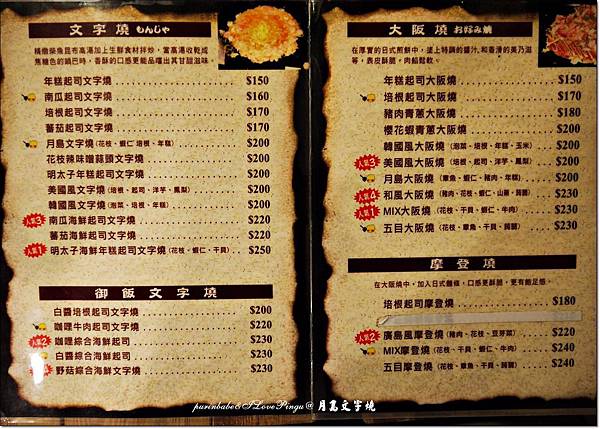 文字燒 もんじゃ
年糕起司文字燒 $150
南瓜起司文字燒 $160
培根起司文字燒 $170
蕃茄起司文字燒 $170
月島文字燒(花枝、蝦仁、培根、年糕) $200
花枝辣味噌蒜頭文字燒 $200
明太子年糕起司文字燒 $200
美國風文字燒(培根、起司、洋芋、鳳梨) $200
韓國風文字燒(泡菜、培根、年糕) $200
人氣3 南瓜海鮮起司文字燒 $220
蕃茄海鮮起司文字燒 $220
人氣1 明太子海鮮年糕起司文字燒(花枝、蝦仁、干貝) $250
御飯文字燒
白醬培根起司文字燒 $200
咖哩牛肉起司文字燒 $220
人氣2 咖哩綜合海鮮起司 $230
白醬綜合海鮮起司 $230
野菇綜合海鮮文字燒 $230
大阪燒 お好み燒
在厚實的日式煎餅中，塗上特調的醬汁，和香滑的美乃滋
等，表皮酥脆，肉餡鬆軟。
年糕起司大阪燒 $150
培根起司大阪燒 $160
豬肉青蔥大阪燒 $180
櫻花蝦青蔥大阪燒 $200
韓國風大阪燒(泡菜、培根、年糕、玉米) $200
人氣3 美國風大阪燒(培根、起司、洋芋、鳳梨) $200
月島大阪燒(章魚、蝦仁、豬肉、年糕) $200
人氣4 和風大阪燒(豬肉、花枝、蝦仁、山藥、蒟蒻) $230
人氣1 MIX大阪燒(花枝、干貝、蝦仁、牛肉) $230
五目大阪燒(花枝、章魚、干貝、蒟蒻) $230
摩登燒
在大阪燒中，加入日式麵條，口感更酥脆，更有飽足感。
培根起司摩登燒 $180
人氣2 廣島風摩登燒(豬肉、花枝、豆芽菜) $220
MIX摩登燒(花枝、干貝、蝦仁、牛肉) $240
五目摩登燒(花枝、章魚、干貝、蒟蒻) $240
purinbabe&ILovePingu@月島文字燒